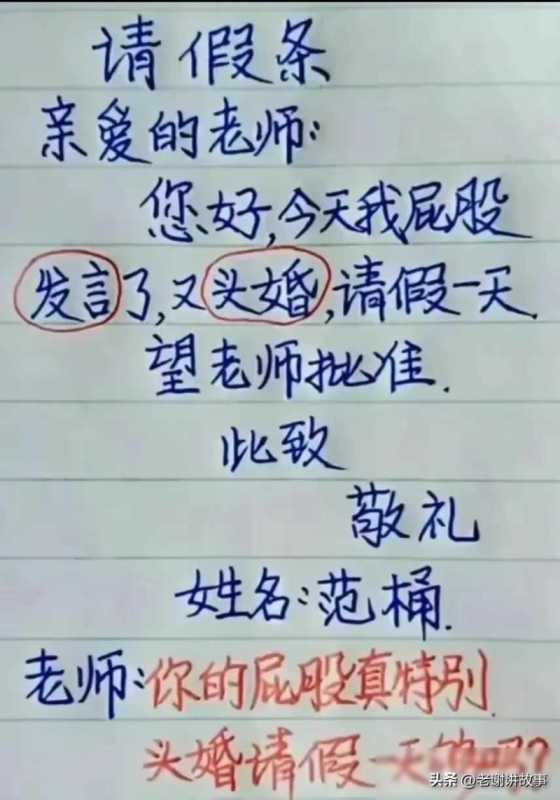 请假条
亲爱的老师:
您好,今天我屁股
发言了,又头婚,请假一天.
望老师批准.
此致
敬礼
姓名:范桶.
老师:你的屁股真特别.
头婚请假一天够吗?
头条 @老谢讲故事